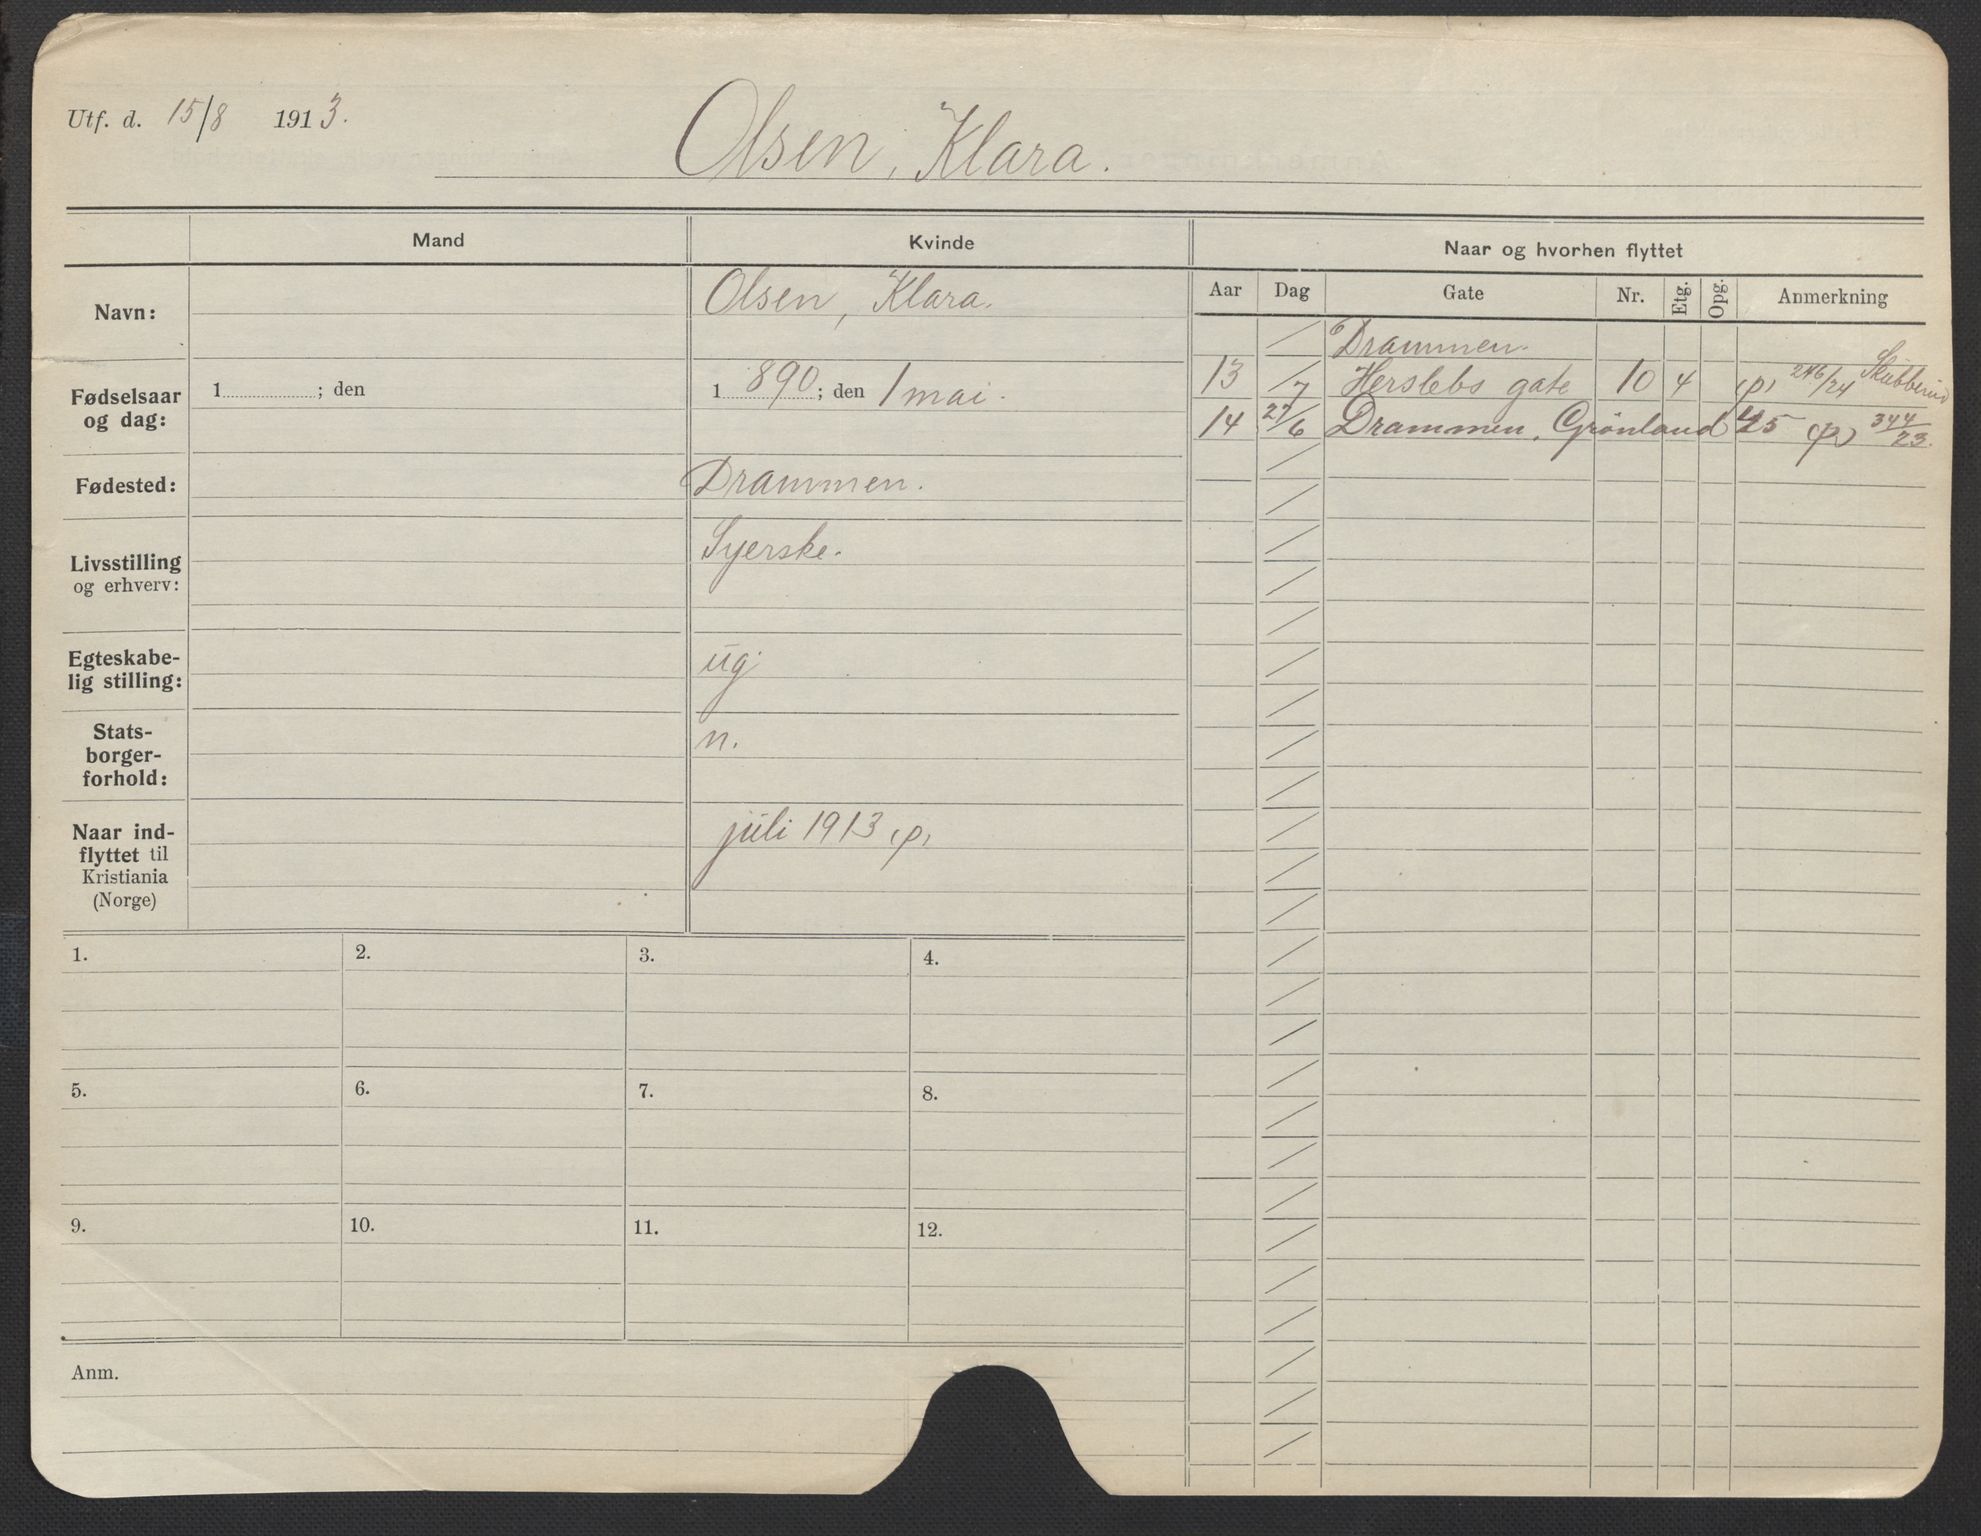 Utf. d. 15/8 1913.
Olsen, Klara.
Mand
Kvinde
Naar og hvorhen flyttet
Navn:
Olsen, Klara.
Fødselsaar
og dag:
1 ; den
1 890 ; den 1 mai.
Fødested:
Drammen.
Livsstilling
og erhverv:
Syerske.
Egteskabe-
lig stilling:
ug.
Stats-
borger-
forhold:
n.
Naar ind-
flyttet til
Kristiania
(Norge)
juli 1913 (p)
Aar Dag Gate Nr. Etg. Opg. Anmerkning
Drammen.
13 /7 Herslebs gate 10 4 (p) 246/24 Skubberud
14 27/6 Drammen, Grönland 45 (p) 344/23.
1. 2. 3. 4.
5. 6. 7. 8.
9. 10. 11. 12.
Anm.